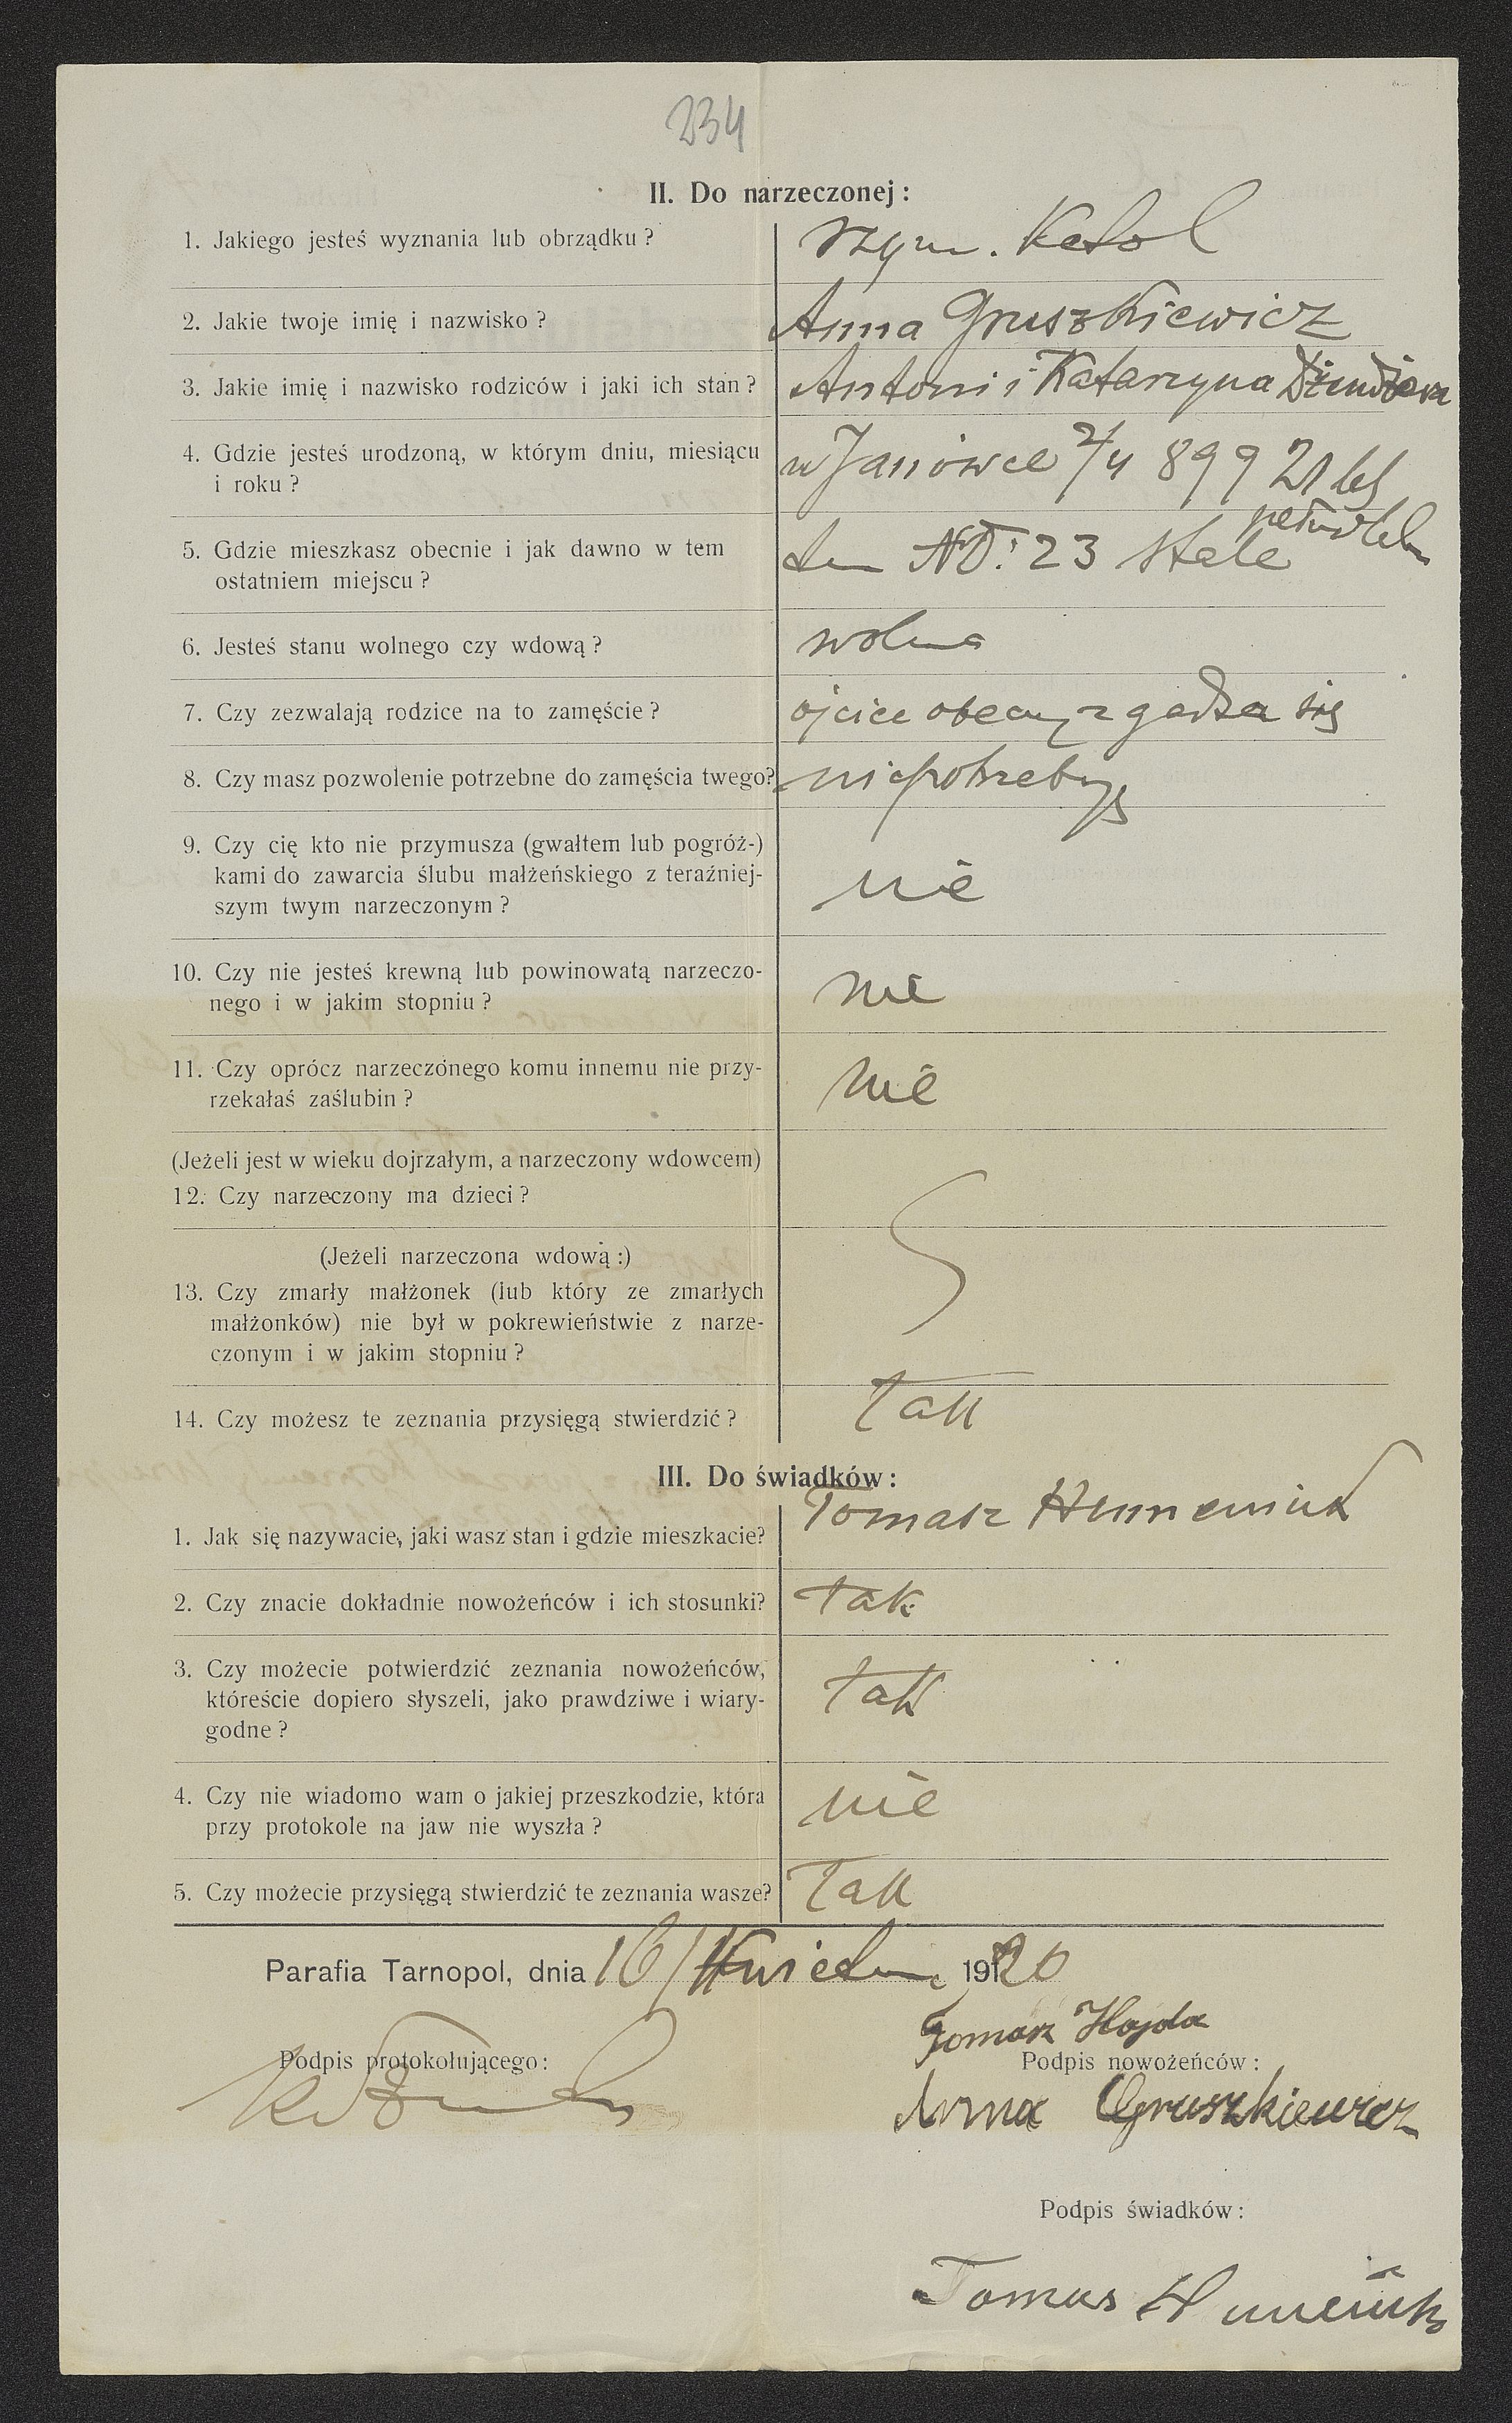 234
II. Do narzeczonej:
1. Jakiego jesteś wyznania lub obrządku?
rzym. Katol
2. Jakie twoje imię i nazwisko?
Anna Gruszkiewicz
3. Jakie imię i nazwisko rodziców i jaki ich stan?
Antoni i Katarzyna
4. Gdzie jesteś urodzoną, w którym dniu, miesiącu
i roku?
w Janówce 2/4 899 21 lat
5. Gdzie mieszkasz obecnie i jak dawno w tem
ostatniem miejscu?
23 stale
6. Jesteś stanu wolnego czy wdową?
wolna
7. Czy zezwalają rodzice na to zamęście?
ojciec obecny zgadza się
8. Czy masz pozwolenie potrzebne do zamęścia twego?
9. Czy cię kto nie przymusza (gwałtem lub pogróż-)
kami do zawarcia ślubu małżeńskiego z teraźniej-
szym twym narzeczonym?
nie
10. Czy nie jesteś krewną lub powinowatą narzeczo-
nego i w jakim stopniu?
nie
11. Czy oprócz narzeczonego komu innemu nie przy-
rzekałaś zaślubin?
nie
(Jeżeli jest w wieku dojrzałym, a narzeczony wdowcem)
12. Czy narzeczony ma dzieci?
(Jeżeli narzeczona wdową:)
13. Czy zmarły małżonek (lub który ze zmarłych
małżonków) nie był w pokrewieństwie z narze-
czonym i w jakim stopniu?
14. Czy możesz te zeznania przysięgą stwierdzić?
Tak
III. Do świadków:
1. Jak się nazywacie, jaki wasz stan i gdzie mieszkacie?
Tomasz Humeniuk
2. Czy znacie dokładnie nowożeńców i ich stosunki?
tak
3. Czy możecie potwierdzić zeznania nowożeńców,
któreście dopiero słyszeli, jako prawdziwe i wiary-
godne?
tak
4. Czy nie wiadomo wam o jakiej przeszkodzie, która
przy protokole na jaw nie wyszła?
nie
5. Czy możecie przysięgą stwierdzić te zeznania wasze?
Tak
Parafia Tarnopol, dnia 16/Kwietnia 1920
Tomasz Hajda
Podpis protokołującego:
Podpis nowożeńców:
Anna Gruszkiewicz
Podpis świadków:
Tomas Humeniuk